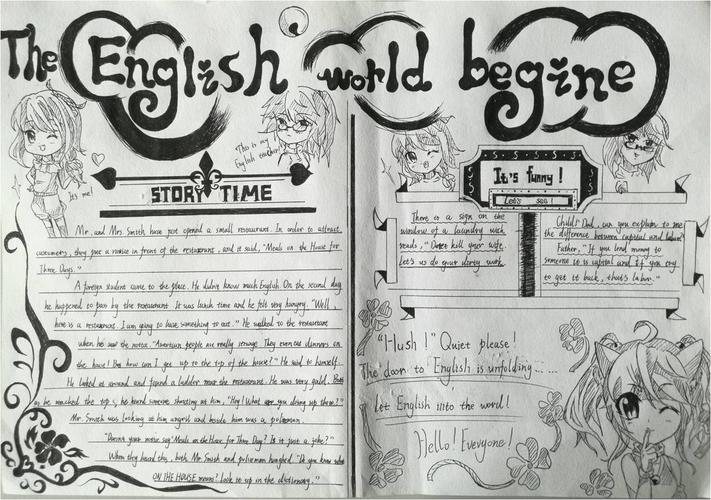 The English world begine
"This is my English teacher!"
It's me!
STORY TIME
Mr. and Mrs. Smith have just opened a small restaurant. In order to attract
customers, they put a notice in front of the restaurant, and it said, "Meals on the House for
Three Days."
A foreign student came to the place. He didn't know much English. On the second day
he happened to pass by the restaurant. It was lunch time and he felt very hungry. "Well,
here is a restaurant. I am going to have something to eat." He walked to the restaurant
when he saw the notice. "American people are really strange. They even eat dinners on
the house! But how can I get up to the top of the house?" He said to himself.
He looked around and found a ladder near the restaurant. He was very glad. But
as he reached the top, he heard someone shouting at him, "Hey! What are you doing up there?"
Mr. Smith was looking at him angrily and beside him was a policeman.
"Doesn't your notice say 'Meals on the House for Three Day'? Is it just a joke?"
When they heard this, both Mr. Smith and policeman laughed. "Do you know what
ON THE HOUSE means? Look it up in the dictionary."
It's funny!
Let's see!
There is a sign on the
window of a laundry which
reads, "Don't kill your wife.
Let's us do your dirty work.
Child: Dad, can you explain to me
the difference between capital and labour?
Father: "If you lend money to
someone it is capital and if you try
to get it back, that's labor."
"Hush!" Quiet please!
The door to English is unfolding......
Let English into the world!
Hello! Everyone!